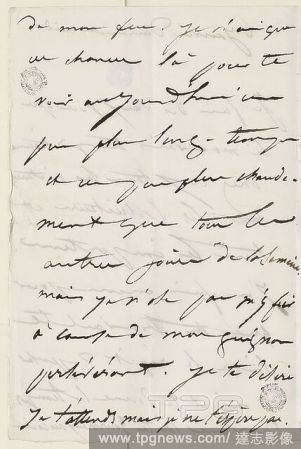 de mon feu. je n'ai que
ce chance là pour te
voir aujourd'hui un
peu plus long-temps
et un peu plus chaude-
ment que tous les
autres jours de la semaine,
mais je n'ose pas m'y fier
à cause de mon guignon
persévérant. je te désire
je t'attends mais je ne t'espère pas.
TPG
www.tpgnews.com/達志影像